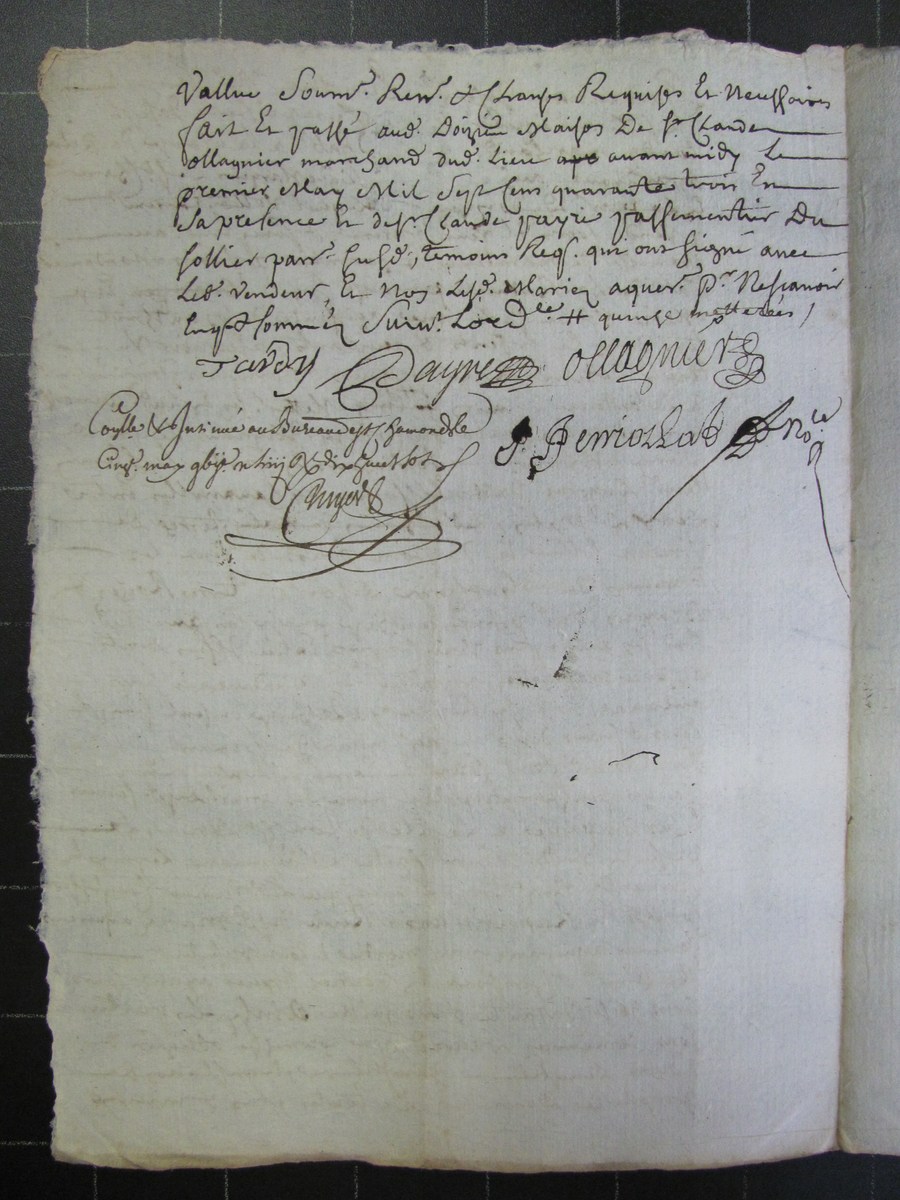 vallue Soumr. Renr. & Clauses Requises Et Necessaires
fait Et passé aud. Doizieu Maison De sr. Claude
Ollagnier marchand dud. Lieu avant midy Le
premier May Mil Sept Cens quarante trois En
sa presence Et de sr. Claude payre passementier Du
sollier parr. susd., temoins Reqs. qui ont signé avec
Led. vendeur, Et Nos: Lesd. Mariez aquer. pr. Ne scavoir
Enqs. & sommez Suivt. Lord.ce # quinze metterées /
Tardy Payre Ollagnier
Con.lle & Insinué au Bureau de st. Chamond le
Cinq. may
dix huit sols
J. Perriollat No.re